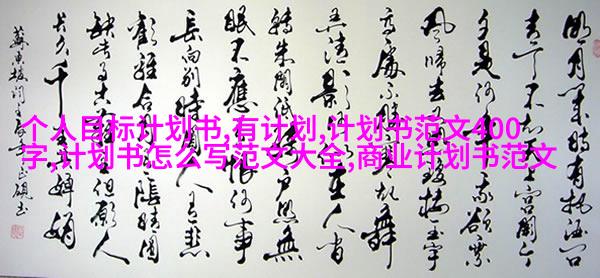 个人目标计划书,有计划,计划书范文400
字,计划书怎么写范文大全,商业计划书范文
明月幾時有把酒问
青天不知天上宫阙今
夕是何年我欲乘
风归去又恐琼楼玉宇
高处不勝寒起舞
弄清影何似在人间
转朱阁低绮户照无
眠不應有恨何事
长向别时圆人有悲
欢离合月有阴晴圆
缺此事古难全但愿人
长久千里共婵娟